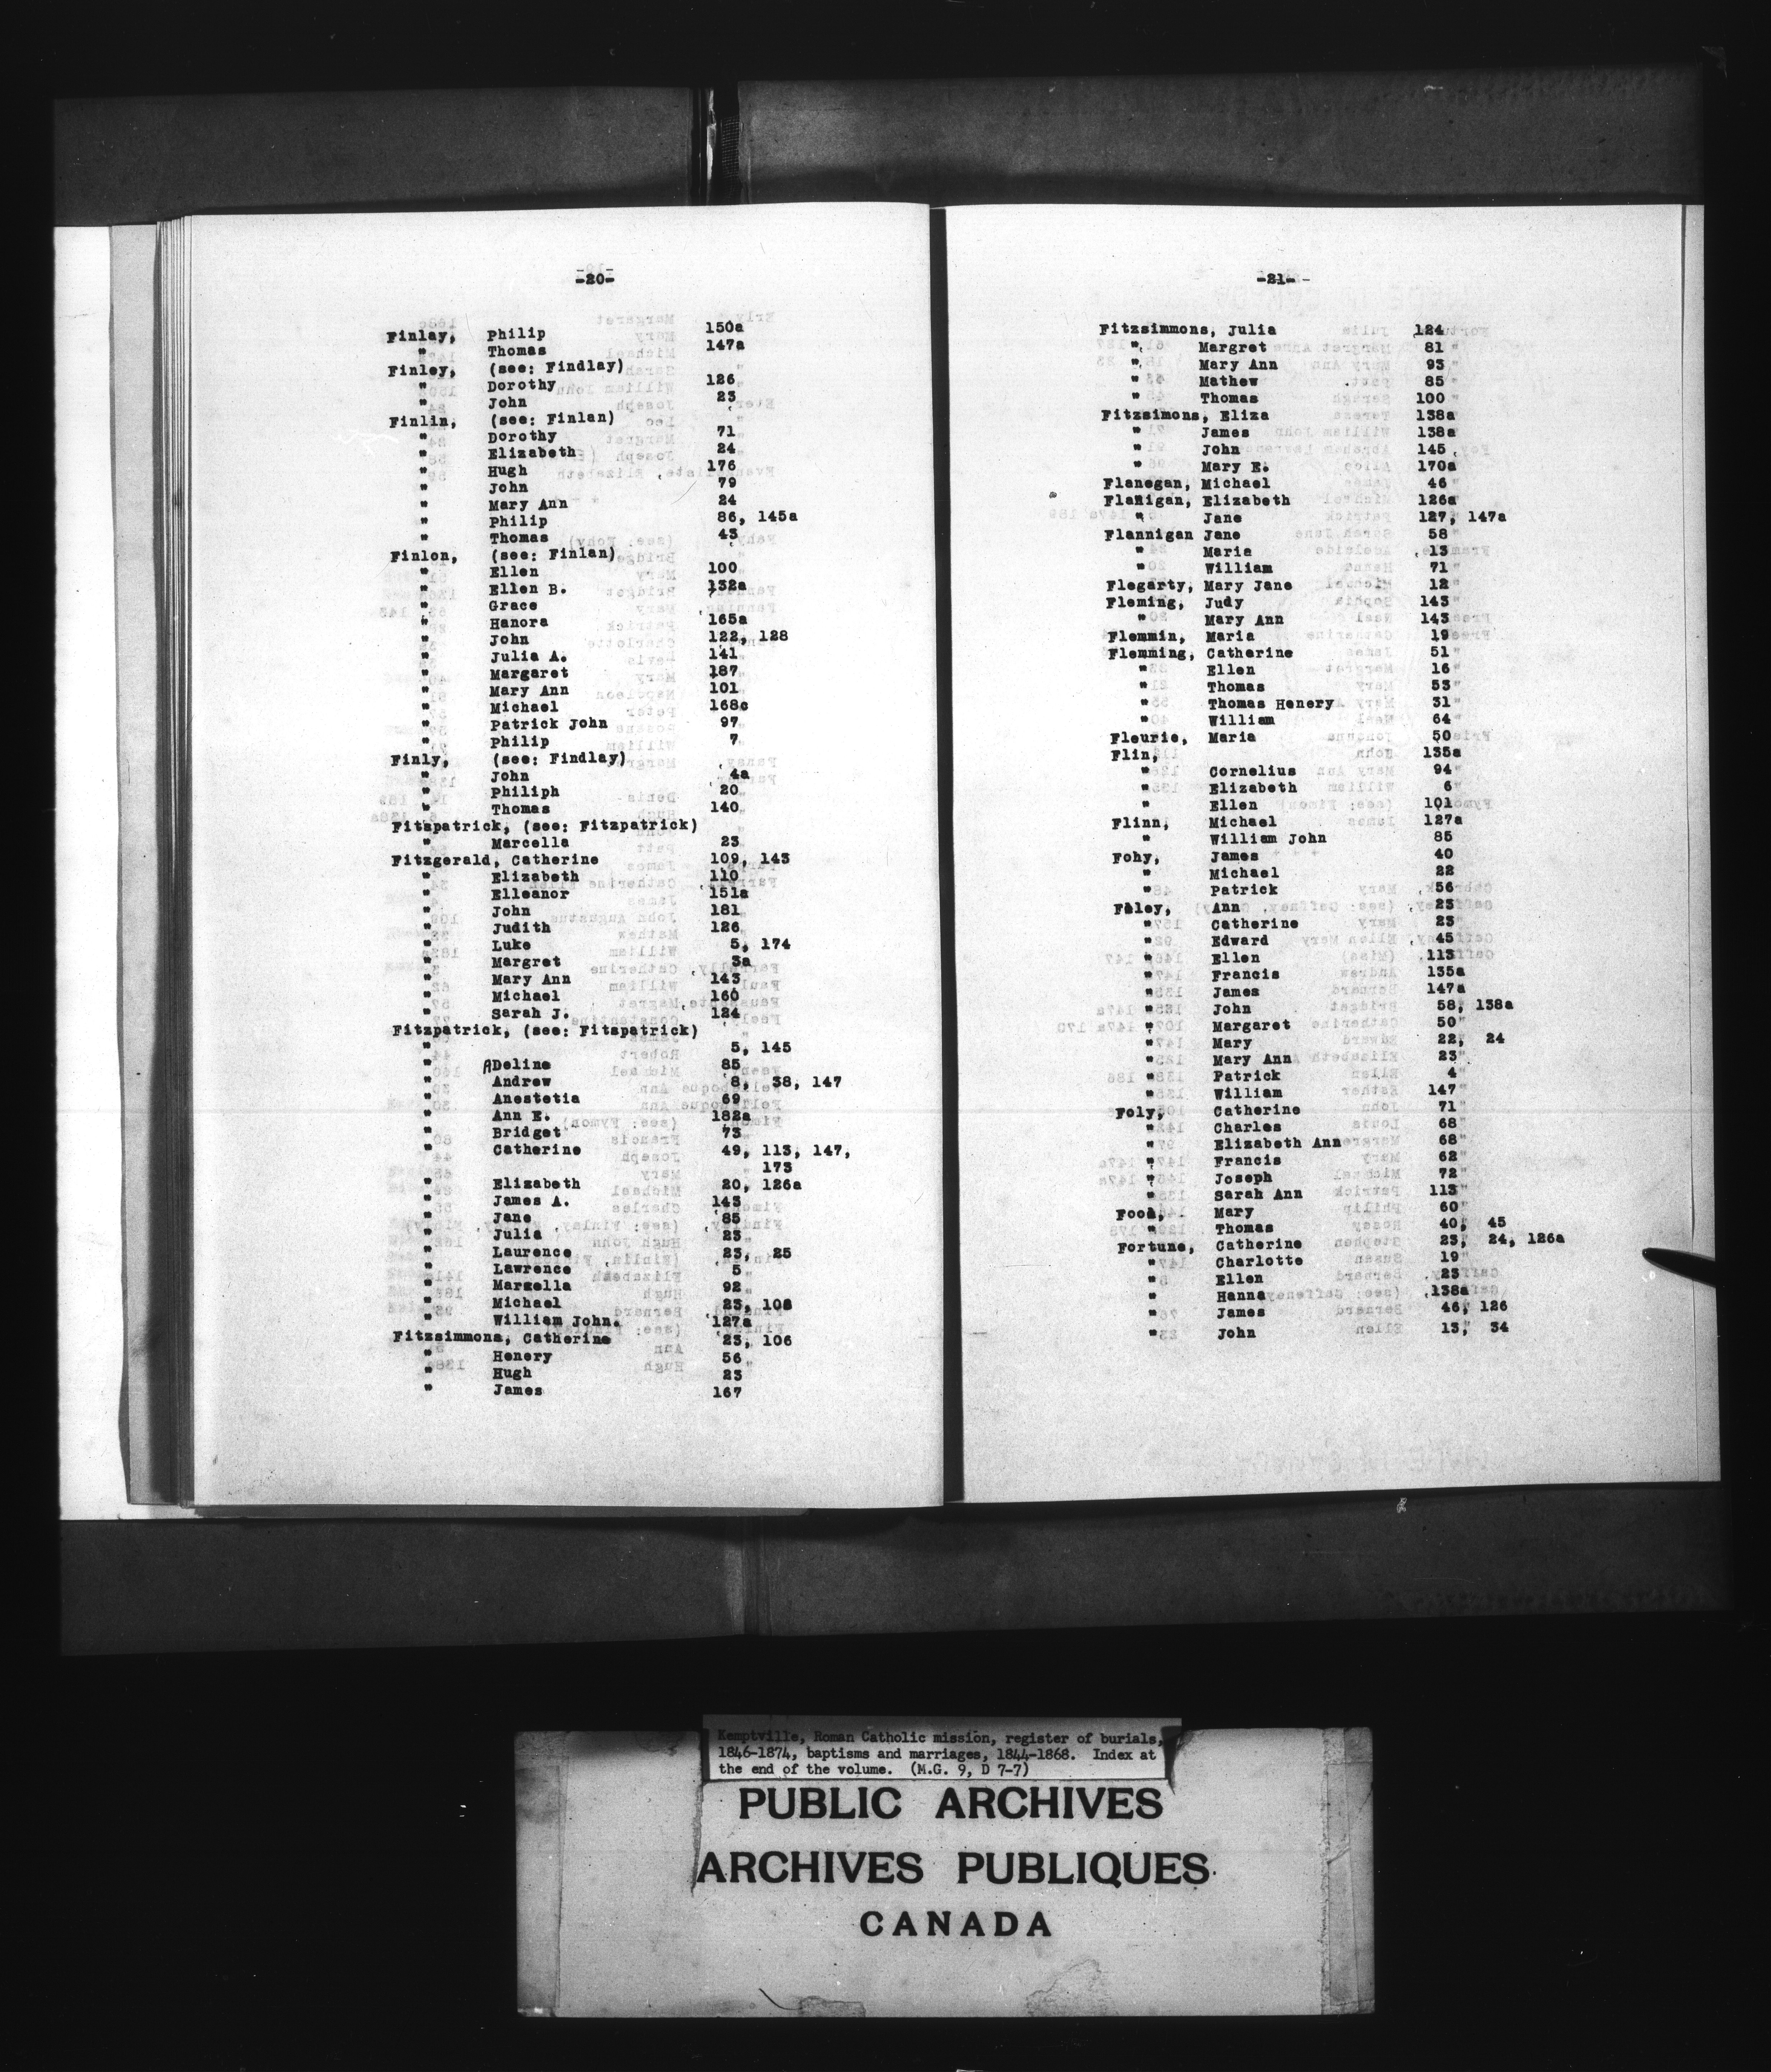 -20-
Finlay, Philip 150a
" Thomas 147a
Finley, (see: Findlay)
" Dorothy 126
" John 23
Finlin, (see: Finlan)
" Dorothy 71
" Elizabeth 24
" Hugh 176
" John 79
" Mary Ann 24
" Philip 86, 145a
" Thomas 43
Finlon, (see: Finlan)
" Ellen 100
" Ellen B. 132a
" Grace
" Hanora 165a
" John 122, 128
" Julia A. 141
" Margaret 187
" Mary Ann 101
" Michael 168c
" Patrick John 97
" Philip 7
Finly, (see: Findlay)
" John 4a
" Philiph 20
" Thomas 140
Fitspatrick, (see: Fitzpatrick)
" Marcella 23
Fitzgerald, Catherine 109, 143
" Elizabeth 110
" Elleanor 151a
" John 181
" Judith 126
" Luke 5, 174
" Margret 3a
" Mary Ann 143
" Michael 160
" Sarah J. 124
Fitzpatrick, (see: Fitspatrick)
" 5, 145
" ADeline 85
" Andrew 8, 38, 147
" Anestetia 69
" Ann E. 182a
" Bridget 73
" Catherine 49, 113, 147,
173
" Elizabeth 20, 126a
" James A. 143
" Jane 85
" Julia 23
" Laurence 23, 25
" Lawrence 5
" Marzella 92
" Michael 23, 108
" William John. 127a
Fitzsimmons, Catherine 23, 106
" Henery 56
" Hugh 23
" James 167
-21-
Fitzsimmons, Julia 124
" Margret 81
" Mary Ann 93
" Mathew 85
" Thomas 100
Fitzsimons, Eliza 138a
" James 138a
" John 145
" Mary E. 170a
Flanegan, Michael 46
Flanigan, Elizabeth 126a
" Jane 127, 147a
Flannigan Jane 58
" Maria 13
" William 71
Flegarty, Mary Jane 12
Fleming, Judy 143
" Mary Ann 143
Flemmin, Maria 19
Flemming, Catherine 51
" Ellen 16
" Thomas 53
" Thomas Henery 31
" William 64
Fleurie, Maria 50
Flin, 135a
" Cornelius 94
" Elizabeth 6
" Ellen 101
Flinn, Michael 127a
" William John 85
Fohy, James 40
" Michael 22
" Patrick 56
Foley, Ann 23
" Catherine 23
" Edward 45
" Ellen 113
" Francis 135a
" James 147a
" John 58, 138a
" Margaret 50
" Mary 22, 24
" Mary Ann 23
" Patrick 4
" William 147
Foly, Catherine 71
" Charles 68
" Elizabeth Ann 68
" Francis 62
" Joseph 72
" Sarah Ann 113
Food, Mary 60
" Thomas 40, 45
Fortune, Catherine 23, 24, 126a
" Charlotte 19
" Ellen 23
" Hanna 138a
" James 46, 126
" John 13, 34
Kemptville, Roman Catholic mission, register of burials,
1846-1874, baptisms and marriages, 1844-1868. Index at
the end of the volume. (M.G. 9, D 7-7)
PUBLIC ARCHIVES
ARCHIVES PUBLIQUES
CANADA